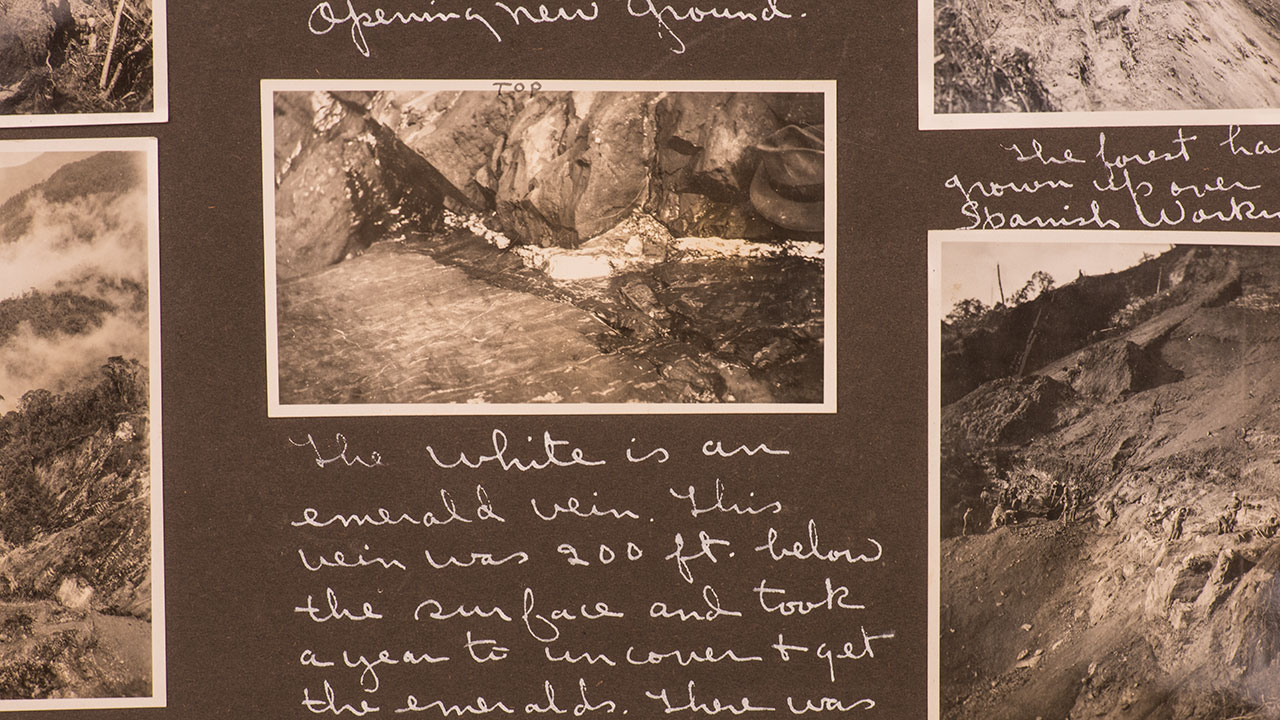 Opening new Ground.
TOP
The white is an
emerald vein. This
vein was 200 ft. below
the surface and took
a year to uncover + get
the emeralds. There was
The forest ha
grown up over
Spanish Workin